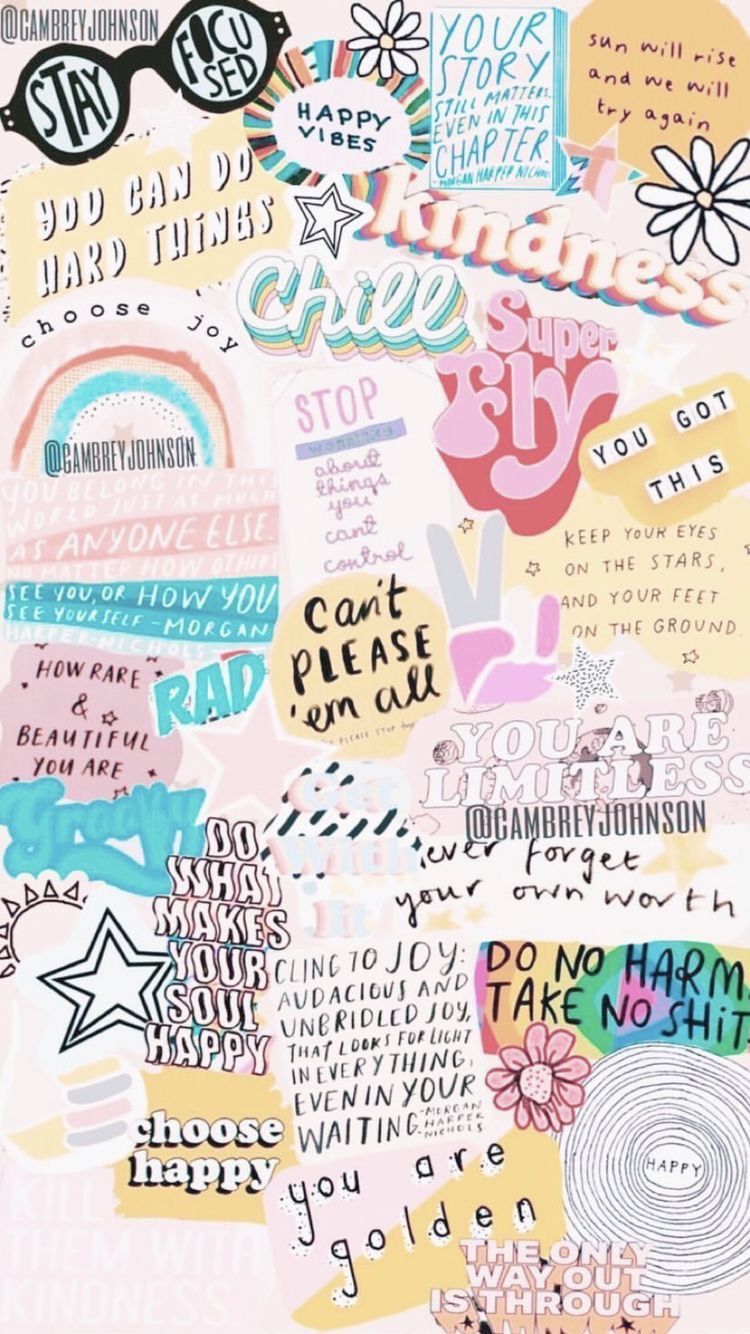 @CAMBREYJOHNSON
STAY
FOCU
SED
HAPPY
VIBES
YOUR
STORY
STILL MATTERS,
EVEN IN THIS
CHAPTER.
-MORGAN HARPER NICHOLS
sun will rise
and we will
try again
YOU CAN DO
HARD THINGS
kindness
Chill
choose joy
@CAMBREYJOHNSON
Super
Fly
STOP
WORRYING
about
things
you
can't
control
YOU GOT
THIS
YOU BELONG IN THIS
WORLD JUST AS MUCH
AS ANYONE ELSE.
NO MATTER HOW OTHERS
SEE YOU, OR HOW YOU
SEE YOURSELF - MORGAN
HARPER NICHOLS
KEEP YOUR EYES
ON THE STARS,
AND YOUR FEET
ON THE GROUND
can't
PLEASE
'em all
PLEASE STOP
HOW RARE
&
BEAUTIFUL
YOU ARE
RAD
YOU ARE
LIMITLESS
@CAMBREYJOHNSON
Groovy
Get
With
It
ever forget
your own worth
DO
WHAT
MAKES
YOUR
SOUL
HAPPY
CLING TO JOY:
AUDACIOUS AND
UNBRIDLED JOY,
THAT LOOKS FOR LIGHT
IN EVERYTHING,
EVEN IN YOUR
WAITING.
-MORGAN
HARPER
NICHOLS
DO NO HARM
TAKE NO SHIT.
choose
happy
HAPPY
you are
golden
KILL
THEM WITH
KINDNESS.
THE ONLY
WAY OUT
IS THROUGH